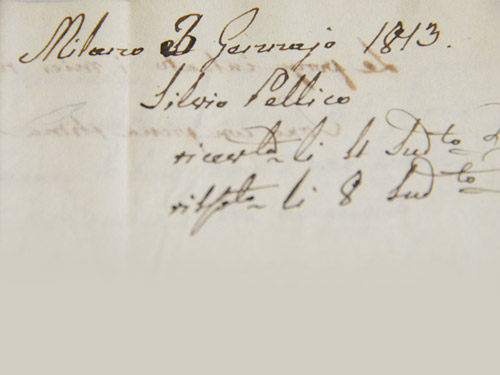 Milano 3 Gennajo 1813.
Silvio Pellico
ricevta li 4 Sudto
rispta li 8 Sudto